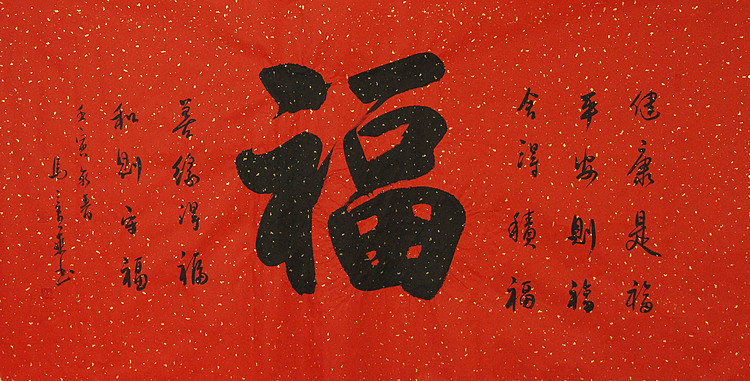 健康是福
平安則福
舍得積福
福
善緣得福
和則守福
壬寅春
馬